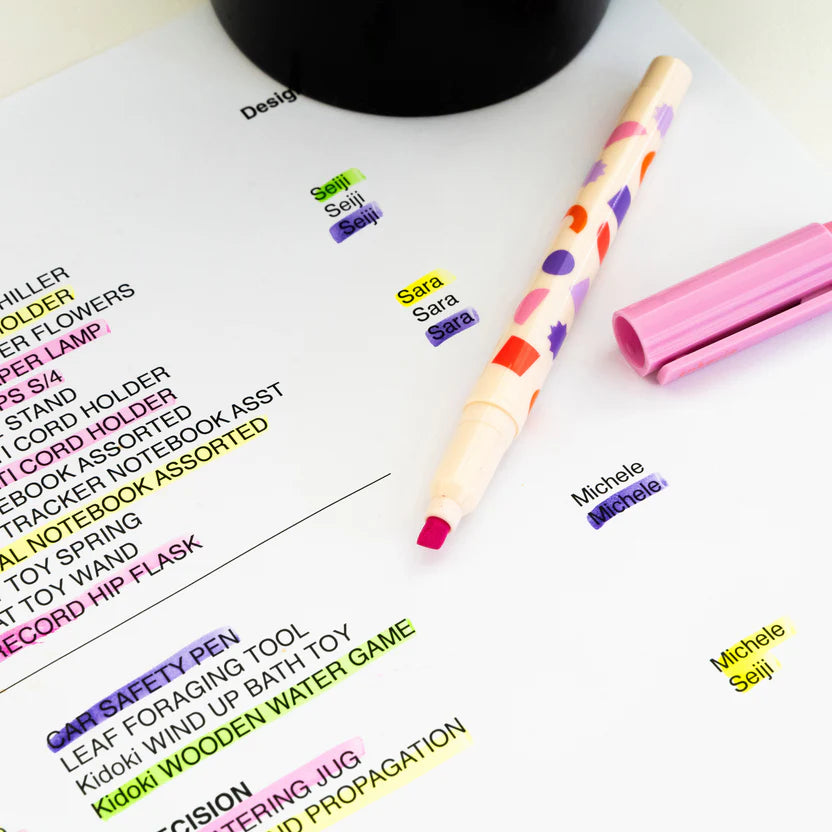 Design
Seiji
Seiji
Seiji
Sara
Sara
Sara
HILLER
HOLDER
ER FLOWERS
PER LAMP
PS S/4
STAND
TI CORD HOLDER
TI CORD HOLDER
EBOOK ASSORTED
TRACKER NOTEBOOK ASST
AL NOTEBOOK ASSORTED
TOY SPRING
AT TOY WAND
RECORD HIP FLASK
Michele
Michele
Michele
Seiji
CAR SAFETY PEN
LEAF FORAGING TOOL
Kidoki WIND UP BATH TOY
Kidoki WOODEN WATER GAME
ECISION
TERING JUG
ND PROPAGATION